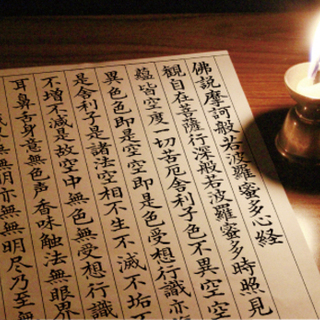 佛説摩訶般若波羅蜜多心経
觀自在菩薩行深般若波羅蜜多時照見
蘊皆空度一切苦厄舍利子色不異空空
異色色即是空空即是色受想行識亦
是舍利子是諸法空相不生不滅不垢不
不増不減是故空中無色無受想行識
耳鼻舌身意無色声香味触法無眼界
無無明亦無無明尽乃至無